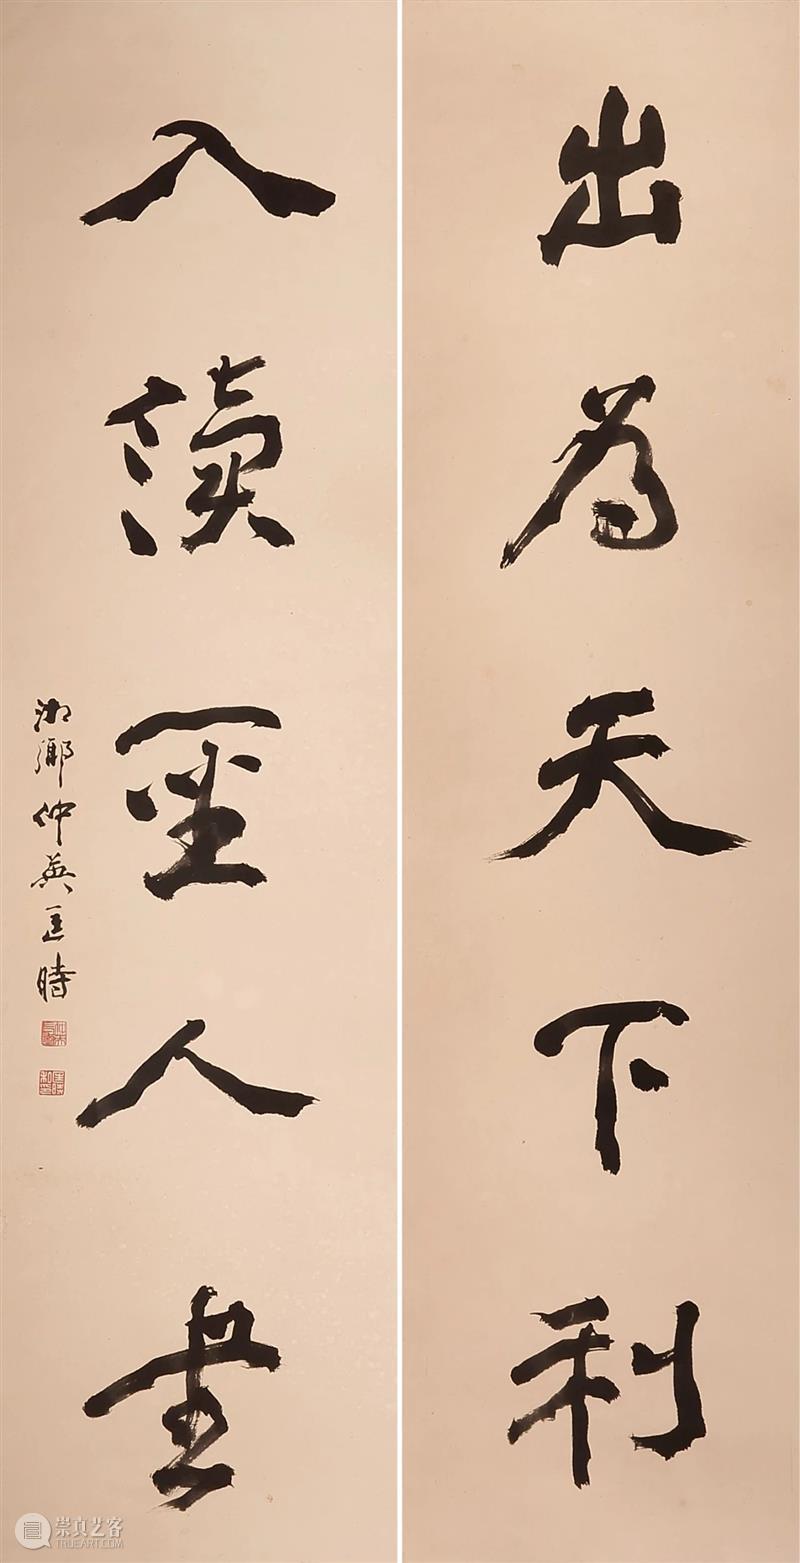 出為天下利
入讀聖人書
湘鄉仲英匡時
崇真艺客
www.TRUEART.COM